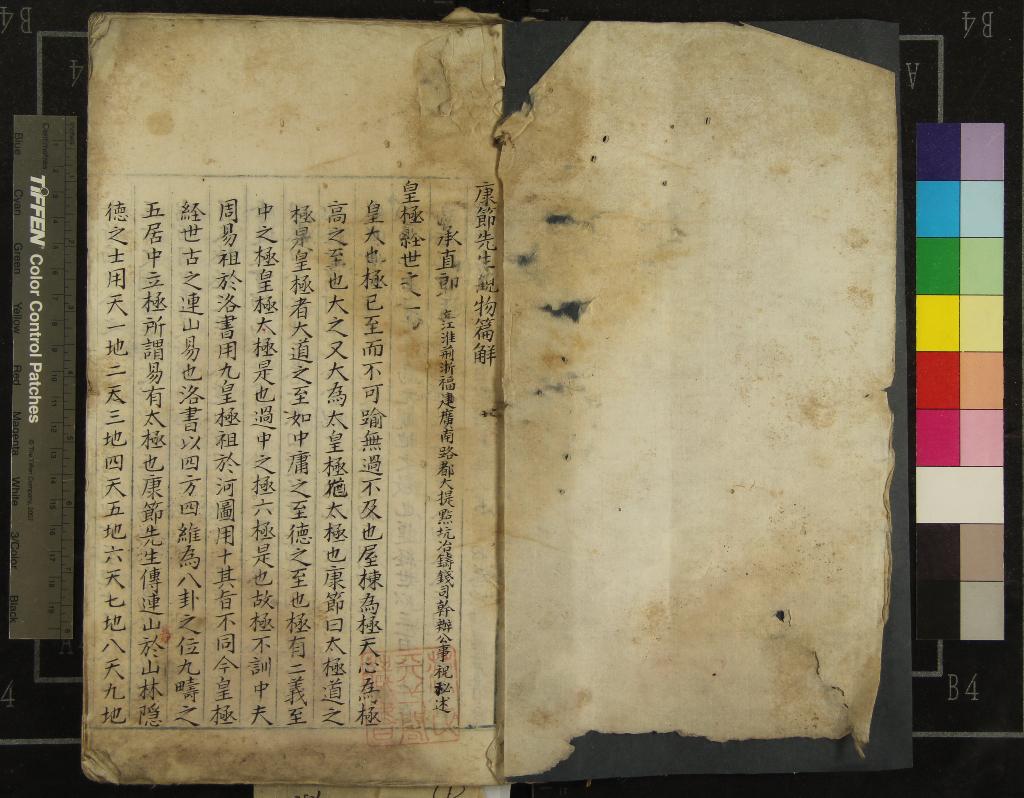 康節先生觀物篇解
承直郎 江淮荊浙福建廣南路都大提點坑冶鑄錢司幹辦公事祝泌述
皇極經世文一
皇大也極已至而不可踰無過不及也屋棟為極天心為極
高之至也大之又大為太皇極猶太極也康節曰太極道之
極是皇極者大道之至如中庸之至德之至也極有二義至
中之極皇極太極是也過中之極六極是也故極不訓中夫
周易祖於洛書用九皇極祖於河圖用十其旨不同今皇極
經世古之連山易也洛書以四方四維為八卦之位九疇之
五居中立極所謂易有太極也康節先生傳連山於山林隱
德之士用天一地二天三地四天五地六天七地八天九地
TIFFEN Color Control Patches
© The Tiffen Company, 2007
Centimetres
Inches
Blue
Cyan
Green
Yellow
Red
Magenta
White
3/Color
Black
B4
B4
A4
B4